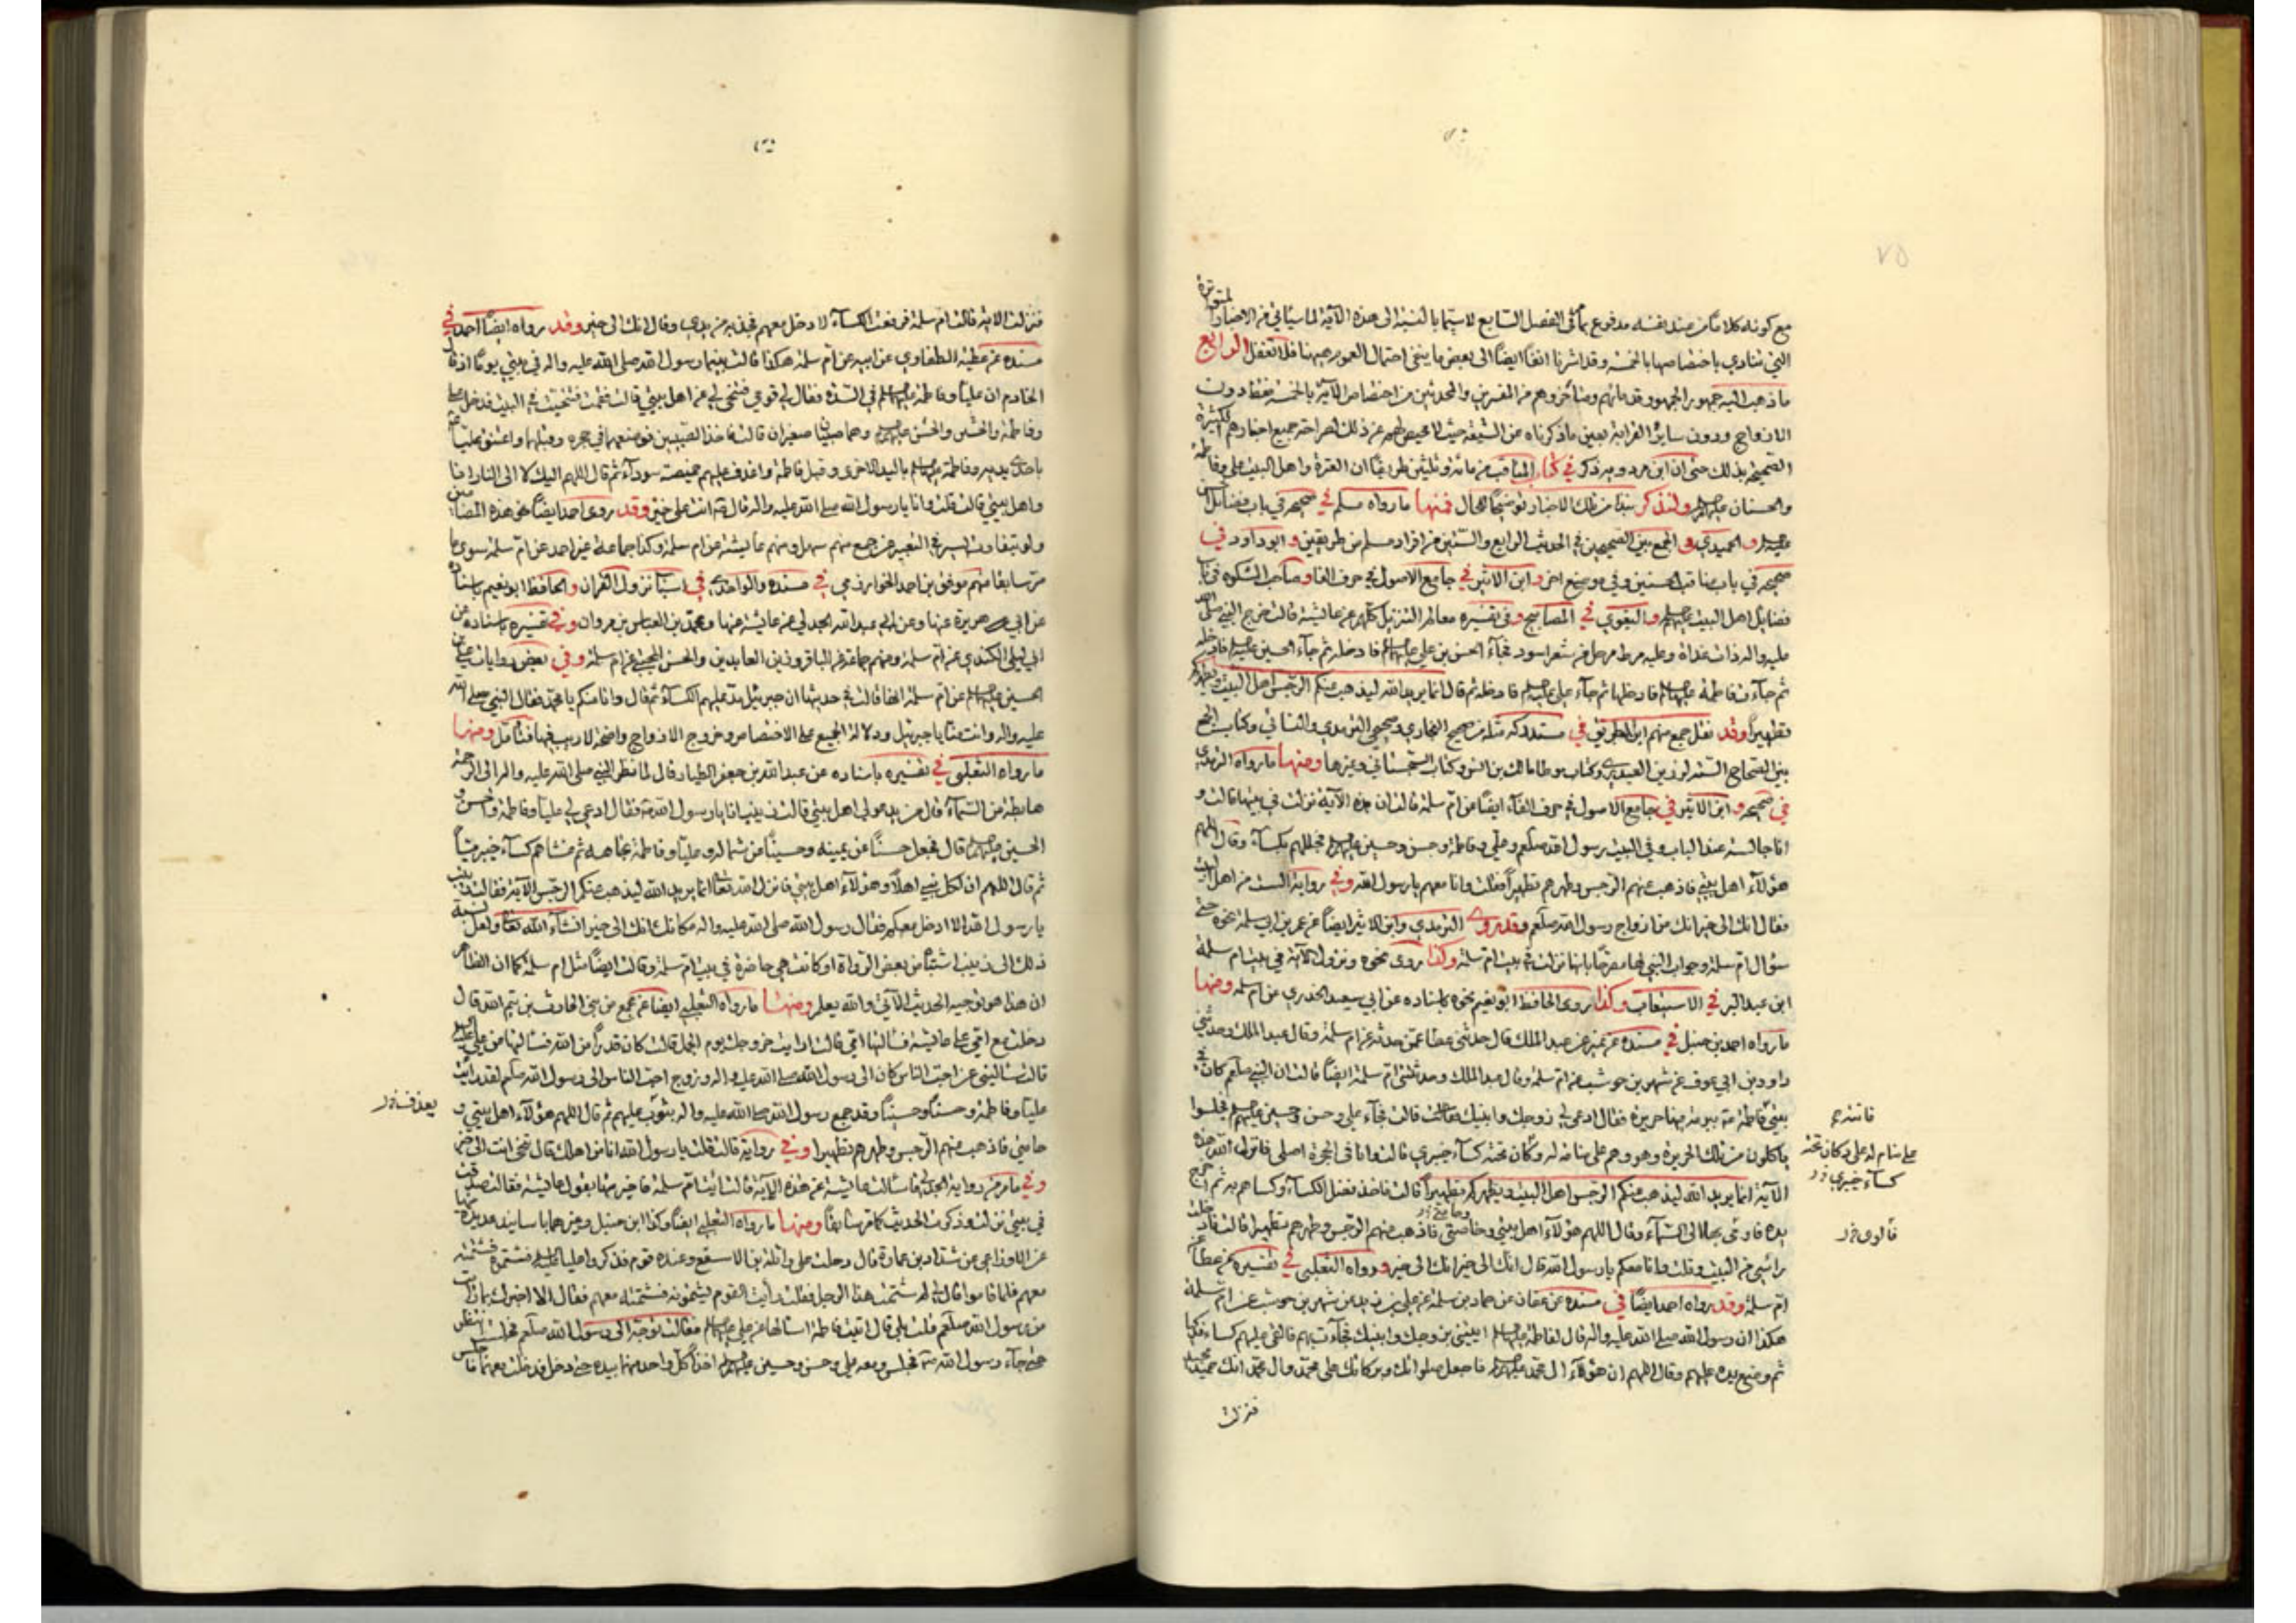 مع كونه كلاما من عند نفسه مدفوع بما في الفصل السابع لا سيما بالنسبة الى هذه الآية لما سيأتي فيه الاخبار المتواترة
التي تنادي باختصاصها بالخمسة وقد اشرنا انفا ايضا الى بعض ما ينفي احتمال العموم ههنا فلا تغفل الرابع
ما ذهب اليه جمهور الجمهور قدمائهم ومتأخروهم من المفسرين والمحدثين من اختصاص الآية بالخمسة فقط دون
الازواج ودون ساير القرابة بعين ما ذكرناه عن الشيعة حيث لا محيص لهم عن ذلك لصراحة جميع اخبارهم الكثيرة
الصحيحة بذلك حتى ان ابن مردويه ذكر في كتاب المناقب من مائة وثلثين طريقا ان العترة واهل البيت علي وفاطمة
والحسنان عليهم السلم ولنذكر نبذا من تلك الاخبار توضيحا للحال فمنها ما رواه مسلم في صحيحه في باب فضايل
والحميدي في الجمع بين الصحيحين في الحديث الرابع والستين من افراد مسلم من طريقين وابو داود في
صحيحه في باب مناقب الحسنين وفي موضع اخر وابن الاثير في جامع الاصول في حرف الفا وصاحب المشكوة في باب
فضايل اهل البيت عليهم السلم والبغوي في المصابيح وفي تفسيره معالم التنزيل كلهم عن عائشة قالت خرج النبي صلى الله
عليه واله ذات غداة وعليه مرط مرحل من شعر اسود فجاء الحسن بن علي عليهما السلم فادخله ثم جاء الحسين عليه السلم فادخله
ثم جاءت فاطمة عليها السلم فادخلها ثم جاء علي عليه السلم فادخله ثم قال انما يريد الله ليذهب عنكم الرجس اهل البيت ويطهركم
تطهيرا وقد نقل جمع منهم ابن البطريق في مستدركه مثله من صحيح البخاري وصحيحي الترمدي والنسائي وكتاب الجمع
بين الصحاح الستة لرزين العبدري وكتاب موطا مالك بن انس وكتاب السجستاني وغيرها ومنها ما رواه الترمدي
في صحيحه وابن الاثير في جامع الاصول في حرف الفاء ايضا عن ام سلمة قالت ان هذه الآية نزلت في بيتها قالت و
انا جالسة عند الباب وفي البيت رسول الله صلعم وعلي وفاطمة وحسن وحسين عليهم السلم فجللهم بكساء وقال اللهم
هؤلاء اهل بيتي فاذهب عنهم الرجس وطهرهم تطهيرا فقلت وانا معهم يا رسول الله وفي رواية الست من اهل البيت
فقال انك الى خير انك من ازواج رسول الله صلعم وقد روى الترمدي وابن الاثير ايضا عن عمر بن ابي سلمة نحوه حتى
سؤال ام سلمة وجواب النبي لها مصرحا بانها نزلت في بيت ام سلمة وكذا روى نحوه ونزول الآية في بيت ام سلمة
ابن عبد البر في الاستيعاب وكذا روى الحافظ ابو نعيم نحوه باسناده عن ابي سعيد الخدري عن ام سلمة ومنها
ما رواه احمد بن حنبل في مسنده عن نمير عن عبد الملك قال حدثني عطا عمن حدثه عن ام سلمة وقال عبد الملك وحدثني
داود بن ابي عوف عن شهر بن حوشب عن ام سلمة وقال عبد الملك وحدثتني ام سلمة ايضا قالت ان النبي صلعم كان في
بيتي فاطمة ببرمة فيها حريرة فقال ادعي لي زوجك وابنيك فقالت قالت فجاء علي وحسن وحسين عليهم السلم فجلسوا
ياكلون من تلك الحريرة وهو وهم على منامة له وكان تحته كساء خيبري قالت وانا في الحجرة اصلي فانزل الله هذه
الآية انما يريد الله ليذهب عنكم الرجس اهل البيت ويطهركم تطهيرا قالت فاخذ فضل الكساء وكساهم به ثم اخرج
يده فاومى بها الى السماء وقال اللهم هؤلاء اهل بيتي وخاصتي فاذهب عنهم الرجس وطهرهم تطهيرا قالت فادخلت
راسي من البيت وقلت وانا معكم يا رسول الله قال انك الى خير انك الى خير ورواه الثعلبي في تفسيره عن عطا عن
ام سلمة وقد رواه احمد ايضا في مسنده عن عفان عن حماد بن سلمة عن علي بن زيد عن شهر بن حوشب عن ام سلمة
هكذا ان رسول الله صلى الله عليه واله قال لفاطمة عليها السلم ايتيني بزوجك وابنيك فجاءت بهم فالقى عليهم كساء فدكيا
ثم وضع يده عليهم وقال اللهم ان هؤلاء ال محمد عليهم السلم فاجعل صلواتك وبركاتك على محمد وال محمد انك حميد مجيد
فنزلت
على منام له على دكان تحته
كساء خيبري
فنزلت الاية قالت ام سلمة فرفعت الكساء لادخل معهم فجذبه من يدي وقال انك الى خير وقد رواه ايضا احمد في
مسنده عن عطية الطفاوي عن ابيه عن ام سلمة هكذا قالت بينما رسول الله صلى الله عليه واله في بيتي يوما اذ قال
الخادم ان عليا وفاطمة عليهما السلم في السدة فقال لي قومي فتنحي لي عن اهل بيتي قالت فقمت فتنحيت في البيت فدخل علي
وفاطمة والحسن والحسين عليهم السلم وهما صبيان صغيران قالت فاخذ الصبيين فوضعهما في حجره وقبلهما واعتنق عليا
باحدى يديه وفاطمة عليها السلم باليد الاخرى وقبل فاطمة واغدف عليهم خميصة سوداء ثم قال اللهم اليك لا الى النار انا
واهل بيتي قالت قلت وانا يا رسول الله صلى الله عليه واله قال وانت على خير وقد روى احمد ايضا نحو هذه المضامين
ولو بتفاوت يسير في التعبير عن جمع منهم سهل ومنهم عايشة عن ام سلمة وكذا جماعة غير احمد عن ام سلمة سوى ما
مر سابقا منهم موفق بن احمد الخوارزمي في مسنده والواحدي في اسباب نزول القران والحافظ ابو نعيم باسناده
عن ابي هريرة عنها وعن ابي عبد الله الجدلي عن عائشة عنها ومحمد بن العباس بن مروان في تفسيره باسناده عن
ابي ليلى الكندي عن ام سلمة ومنهم جماعة عن الباقر وزين العابدين والحسن المجتبى عن ام سلمة وفي بعض روايات علي بن
الحسين عليهما السلم عن ام سلمة انها قالت في حديثها ان جبرئيل مد عليهم الكساء ثم قال وانا منكم يا محمد فقال النبي صلى الله
عليه واله وانت منا يا جبرئيل ودلالة الجميع على الاختصاص وخروج الازواج واضحة لا ريب فيها فتأمل ومنها
ما رواه الثعلبي في تفسيره باسناده عن عبد الله بن جعفر الطيار قال لما نظر النبي صلى الله عليه واله الى الرحمة
هابطة من السماء قال من يدعو لي اهل بيتي قالت زينب انا يا رسول الله فقال ادعي لي عليا وفاطمة والحسن و
الحسين عليهم السلم قال فجعل حسنا عن يمينه وحسينا عن شماله وعليا وفاطمة تجاهه ثم غشاهم كساء خيبريا
ثم قال اللهم ان لكل نبي اهلا وهؤلاء اهل بيتي فانزل الله تعا انما يريد الله ليذهب عنكم الرجس الآية فقالت زينب
يا رسول الله الا ادخل معكم فقال رسول الله صلى الله عليه واله مكانك انك الى خير انشاء الله تعا ولعل نسبة
ذلك الى زينب اشتباه من بعض الرواة او كانت هي حاضرة في بيت ام سلمة وقالت ايضا مثل ام سلمة كما ان الظاهر
ان هذا هو توجيه الحديث الآتي والله يعلم ومنها ما رواه الثعلبي ايضا عن مجمع من بني الحارث بن تيم الله قال
دخلت مع امي على عائشة فسالتها امي قالت ارايت خروجك يوم الجمل قالت كان قدرا من الله فسالتها عن علي عليه السلم
قالت تساليني عن احب الناس كان الى رسول الله صلى الله عليه واله وزوج احب الناس الى رسول الله صلعم لقد رايت
عليا وفاطمة وحسنا وحسينا وقد جمع رسول الله صلى الله عليه واله بثوب عليهم ثم قال اللهم هؤلاء اهل بيتي و
حامتي فاذهب عنهم الرجس وطهرهم تطهيرا وفي رواية قالت فقلت يا رسول الله انا من اهلك قال تنحي انت الى خير
وفي ما مر من رواية الجدلي قال سالت عائشة عن هذه الآية قالت ائت ام سلمة فاخبرتها بقول عائشة فقالت صدقت
في بيتي نزلت وذكرت الحديث كما مر سابقا ومنها ما رواه الثعلبي ايضا وكذا ابن حنبل وغيرهما باسانيد عديدة
عن الاوزاعي عن شداد بن عمارة قال دخلت على واثلة بن الاسقع وعنده قوم فذكروا عليا عليه السلم فشتموه فشتمته
معهم فلما قاموا قال لي لم شتمت هذا الرجل فقلت رايت القوم يشتمونه فشتمته معهم فقال الا اخبرك بما رايت
من رسول الله صلعم قلت بلى قال اتيت فاطمة اسالها عن علي عليهما السلم فقالت توجه الى رسول الله صلعم فجلست انتظر
حتى جاء رسول الله فجلس ومعه علي وحسن وحسين عليهم السلم اخذا كل واحد منهما بيده حتى دخل